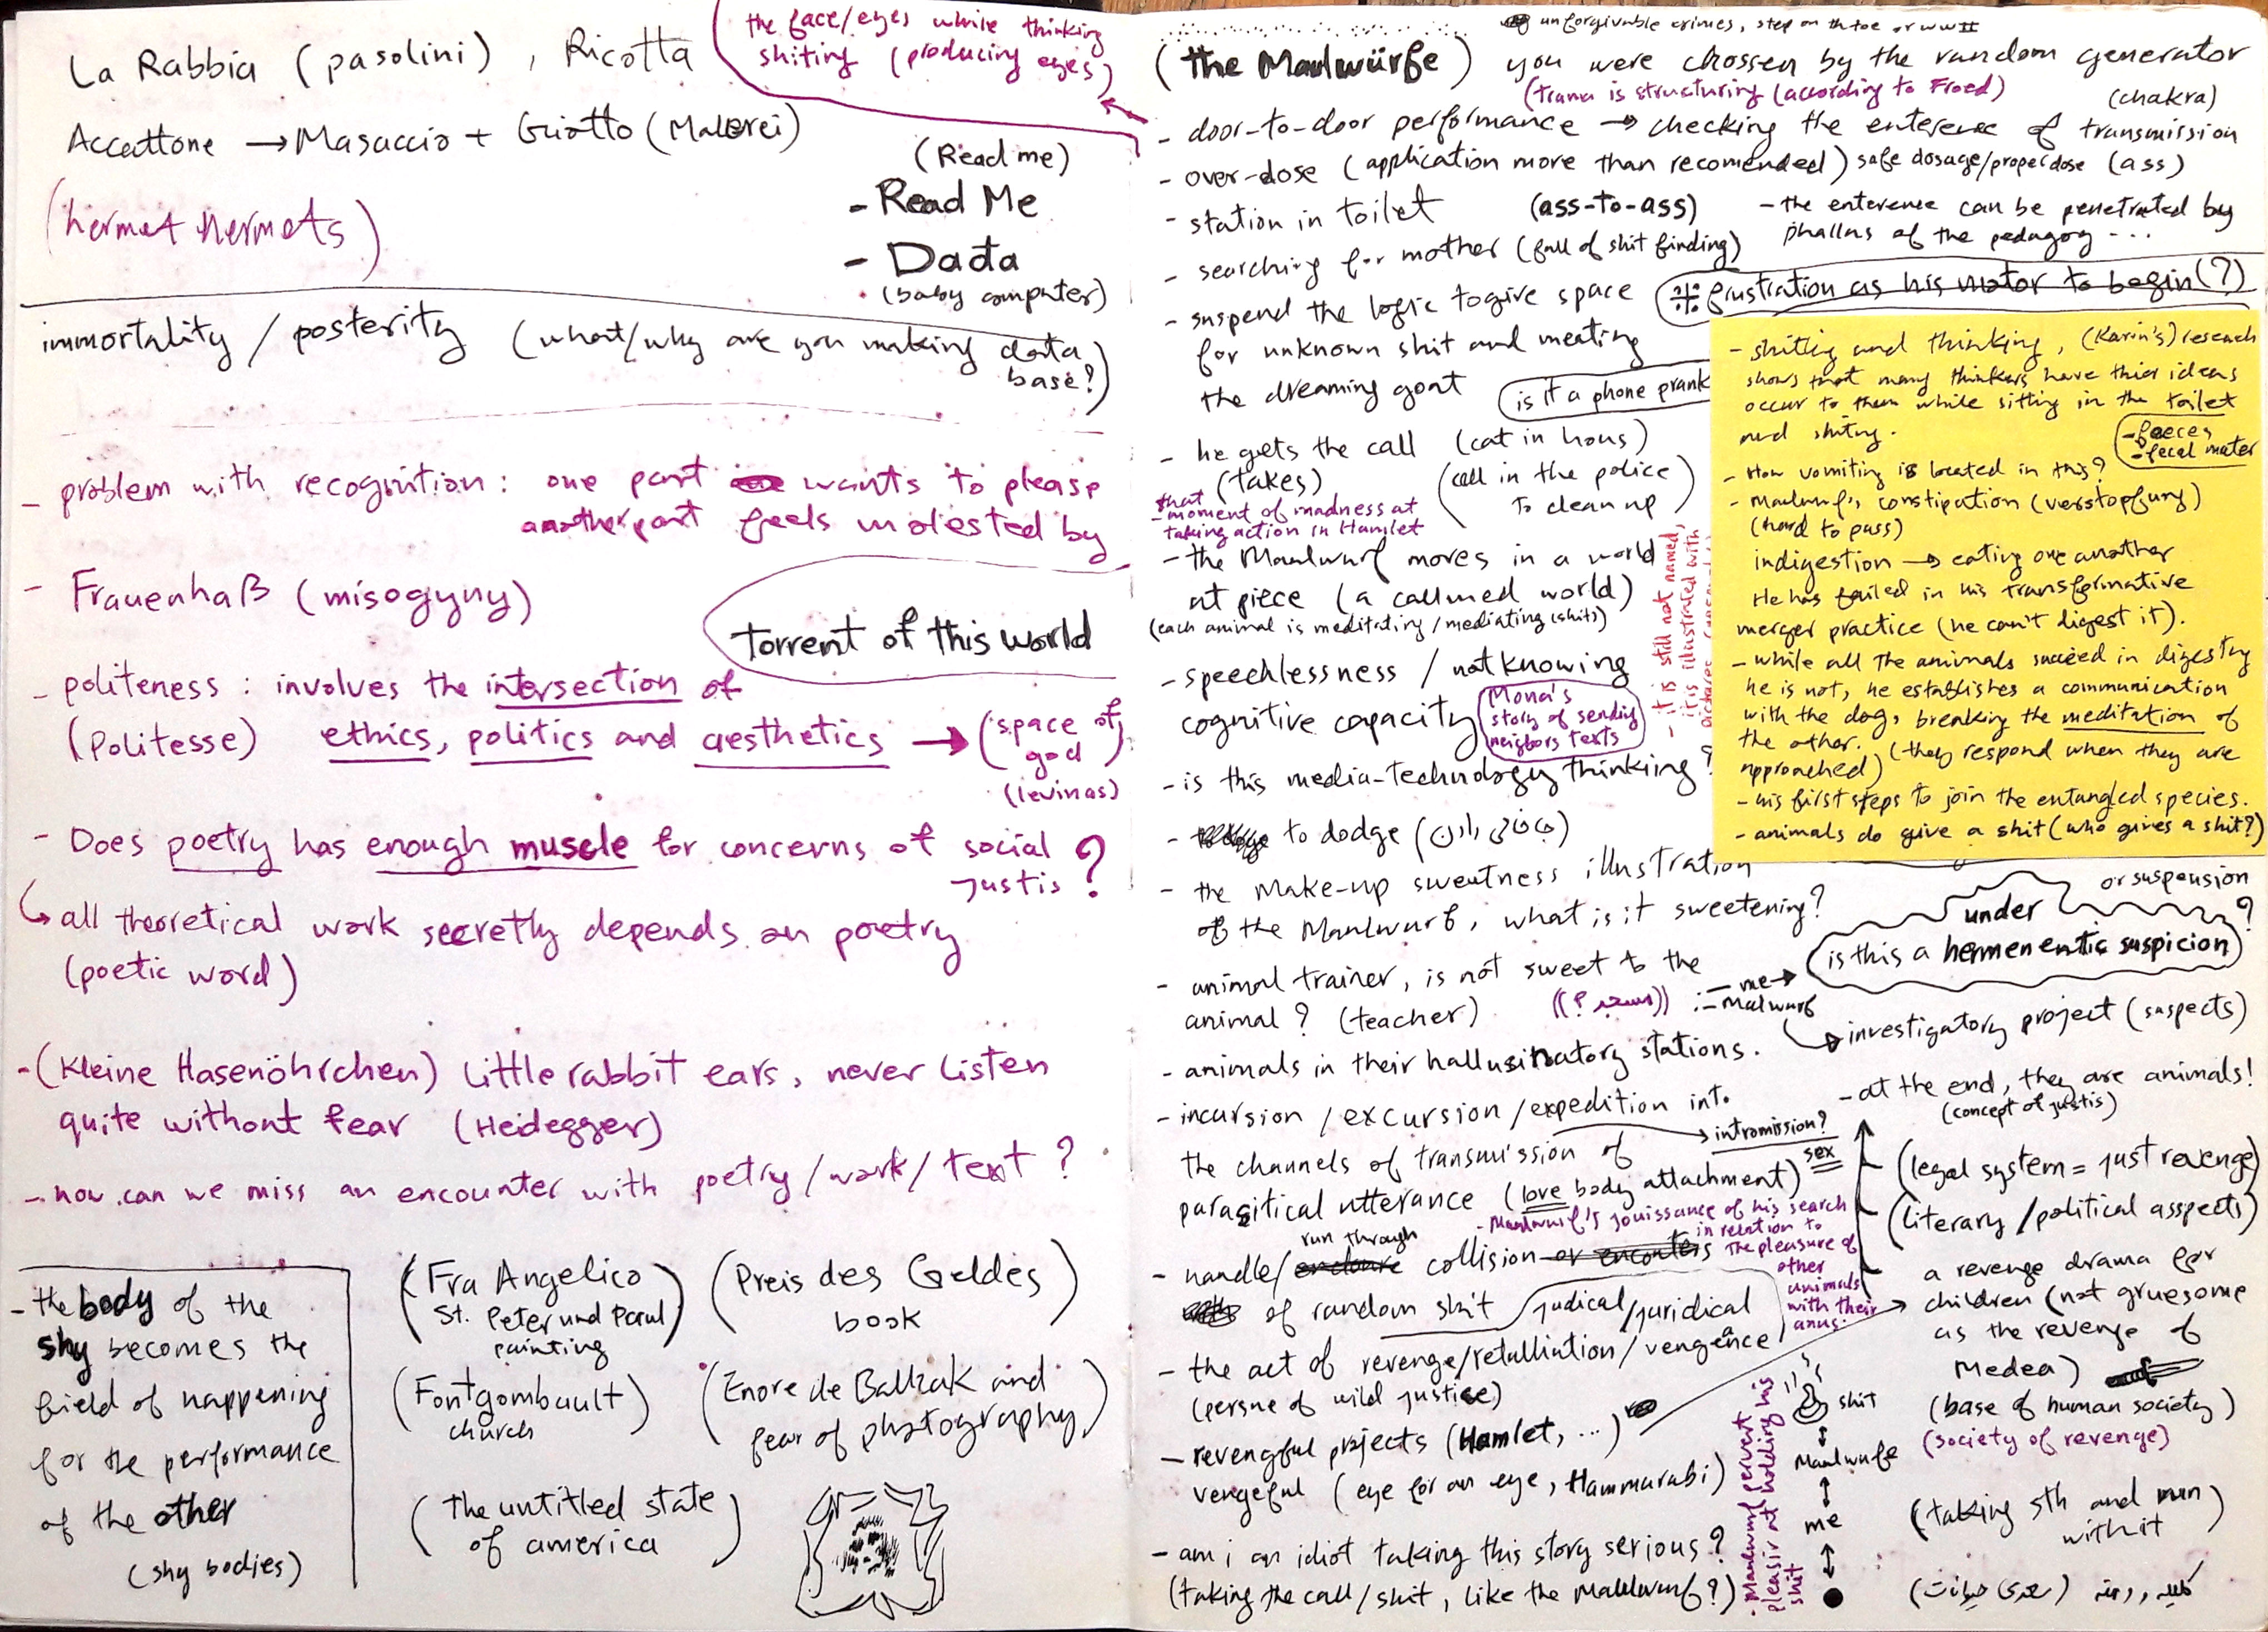 La Rabbia (pasolini), Ricotta
the face/eyes while thinking
shiting (producing eyes)
Accattone → Masaccio + Giotto (Malerei)
(hermet hermets)
(Read me)
- Read Me
- Dada
(baby computer)
immortality / posterity (what/why are you making data
base?)
- problem with recognition: one part wants to please
another part feels molested by
- Frauenhaß (misogyny)
torrent of this world
- politeness: involves the intersection of
(politesse) ethics, politics and aesthetics → (space of
god)
(levinas)
- Does poetry has enough muscle for concerns of social
justis ?
↳ all theoretical work secretly depends on poetry
(poetic word)
- (kleine Hasenöhrchen) little rabbit ears, never listen
quite without fear (Heidegger)
- how can we miss an encounter with poetry/work/text ?
- the body of the
shy becomes the
field of happening
for the performance
of the other
(shy bodies)
(Fra Angelico
St. Peter und Paul
painting)
(Preis des Geldes
book)
(Fontgombault
church)
(Enore de Ballzak and
fear of photography)
(the untitled state
of america)
unforgivable crimes, step on th toe or WW II
(the Maulwürfe) you were chossen by the random generator
(trama is structuring (according to Froed)
(chakra)
- door-to-door performance → checking the enterence of transmission
- over-dose (application more than recomended) safe dosage/proper dose (ass)
- station in toilet (ass-to-ass)
- the enterence can be penetrated by
phallus of the pedagog ...
- searching for mother (full of shit finding)
- suspend the logic to give space
for unknown shit and meating
the dreaming goat
frustration as his motor to begin (?)
is it a phone prank
- he gets the call (cat in hous)
(takes)
(call in the police
to clean up)
- that moment of madness at
taking action in Hamlet
- the Maulwurf moves in a world
at piece (a callmed world)
(each animal is meditating/mediating (shits)
- it is still not named,
it is illustrated with
- speechlessness / not knowing
cognitive capacity
Mona's
story of sending
neigbors texts
- is this media-technology thinking ?
- to dodge (جاخالی دادن)
- the make-up sweetness illustration
of the Maulwurf, what is it sweetening?
- animal trainer, is not sweet to the
animal ? (teacher)
:- me →
- Maulwurf
- animals in their hallusinatory stations.
- incursion / excursion / expedition into
→ intromission?
sex
the channels of transmission of
parasitical utterance (love body attachment)
- Maulwurf's jouissance of his search
in relation to
the pleasure of
other
animals
with their
anus.
run through
- handle/ collision or enconters
of random shit
judical/juridical
- the act of revenge/retalliation/vengeance
(persue of wild justice)
- revengful projects (Hamlet, ...)
vengeful (eye for an eye, Hammurabi)
- am i an idiot taking this story serious?
(taking the call/shit, like the Maulwurf?)
- Maulwurf pervert
pleasir at holding his
shit
shit
Maulwurfe
me
- shitting and thinking, (Karin's) reseach
shows that many thinkers have thier ideas
occur to them while sitting in the toilet
and shiting.
- faeces
- fecal mater
- How vomiting is located in this?
- maulwurf's constipation (verstopfung)
(hard to pass)
indigestion → eating one another
He has failed in his transformative
merger practice (he can't digest it).
- while all the animals succeed in digesting
he is not, he establishes a communication
with the dog, breaking the meditation of
the other. (they respond when they are
approached)
- his first steps to join the entangled species.
- animals do give a shit (who gives a shit?)
or suspension
under
is this a hermeneutic suspicion ?
investigatory project (suspects)
- at the end, they are animals!
(concept of justis)
(legal system = just revenge)
(literary/political asspects)
a revenge drama for
children (not gruesome
as the revenge of
Medea)
(base of human society)
(society of revenge)
(taking sth and run
with it)